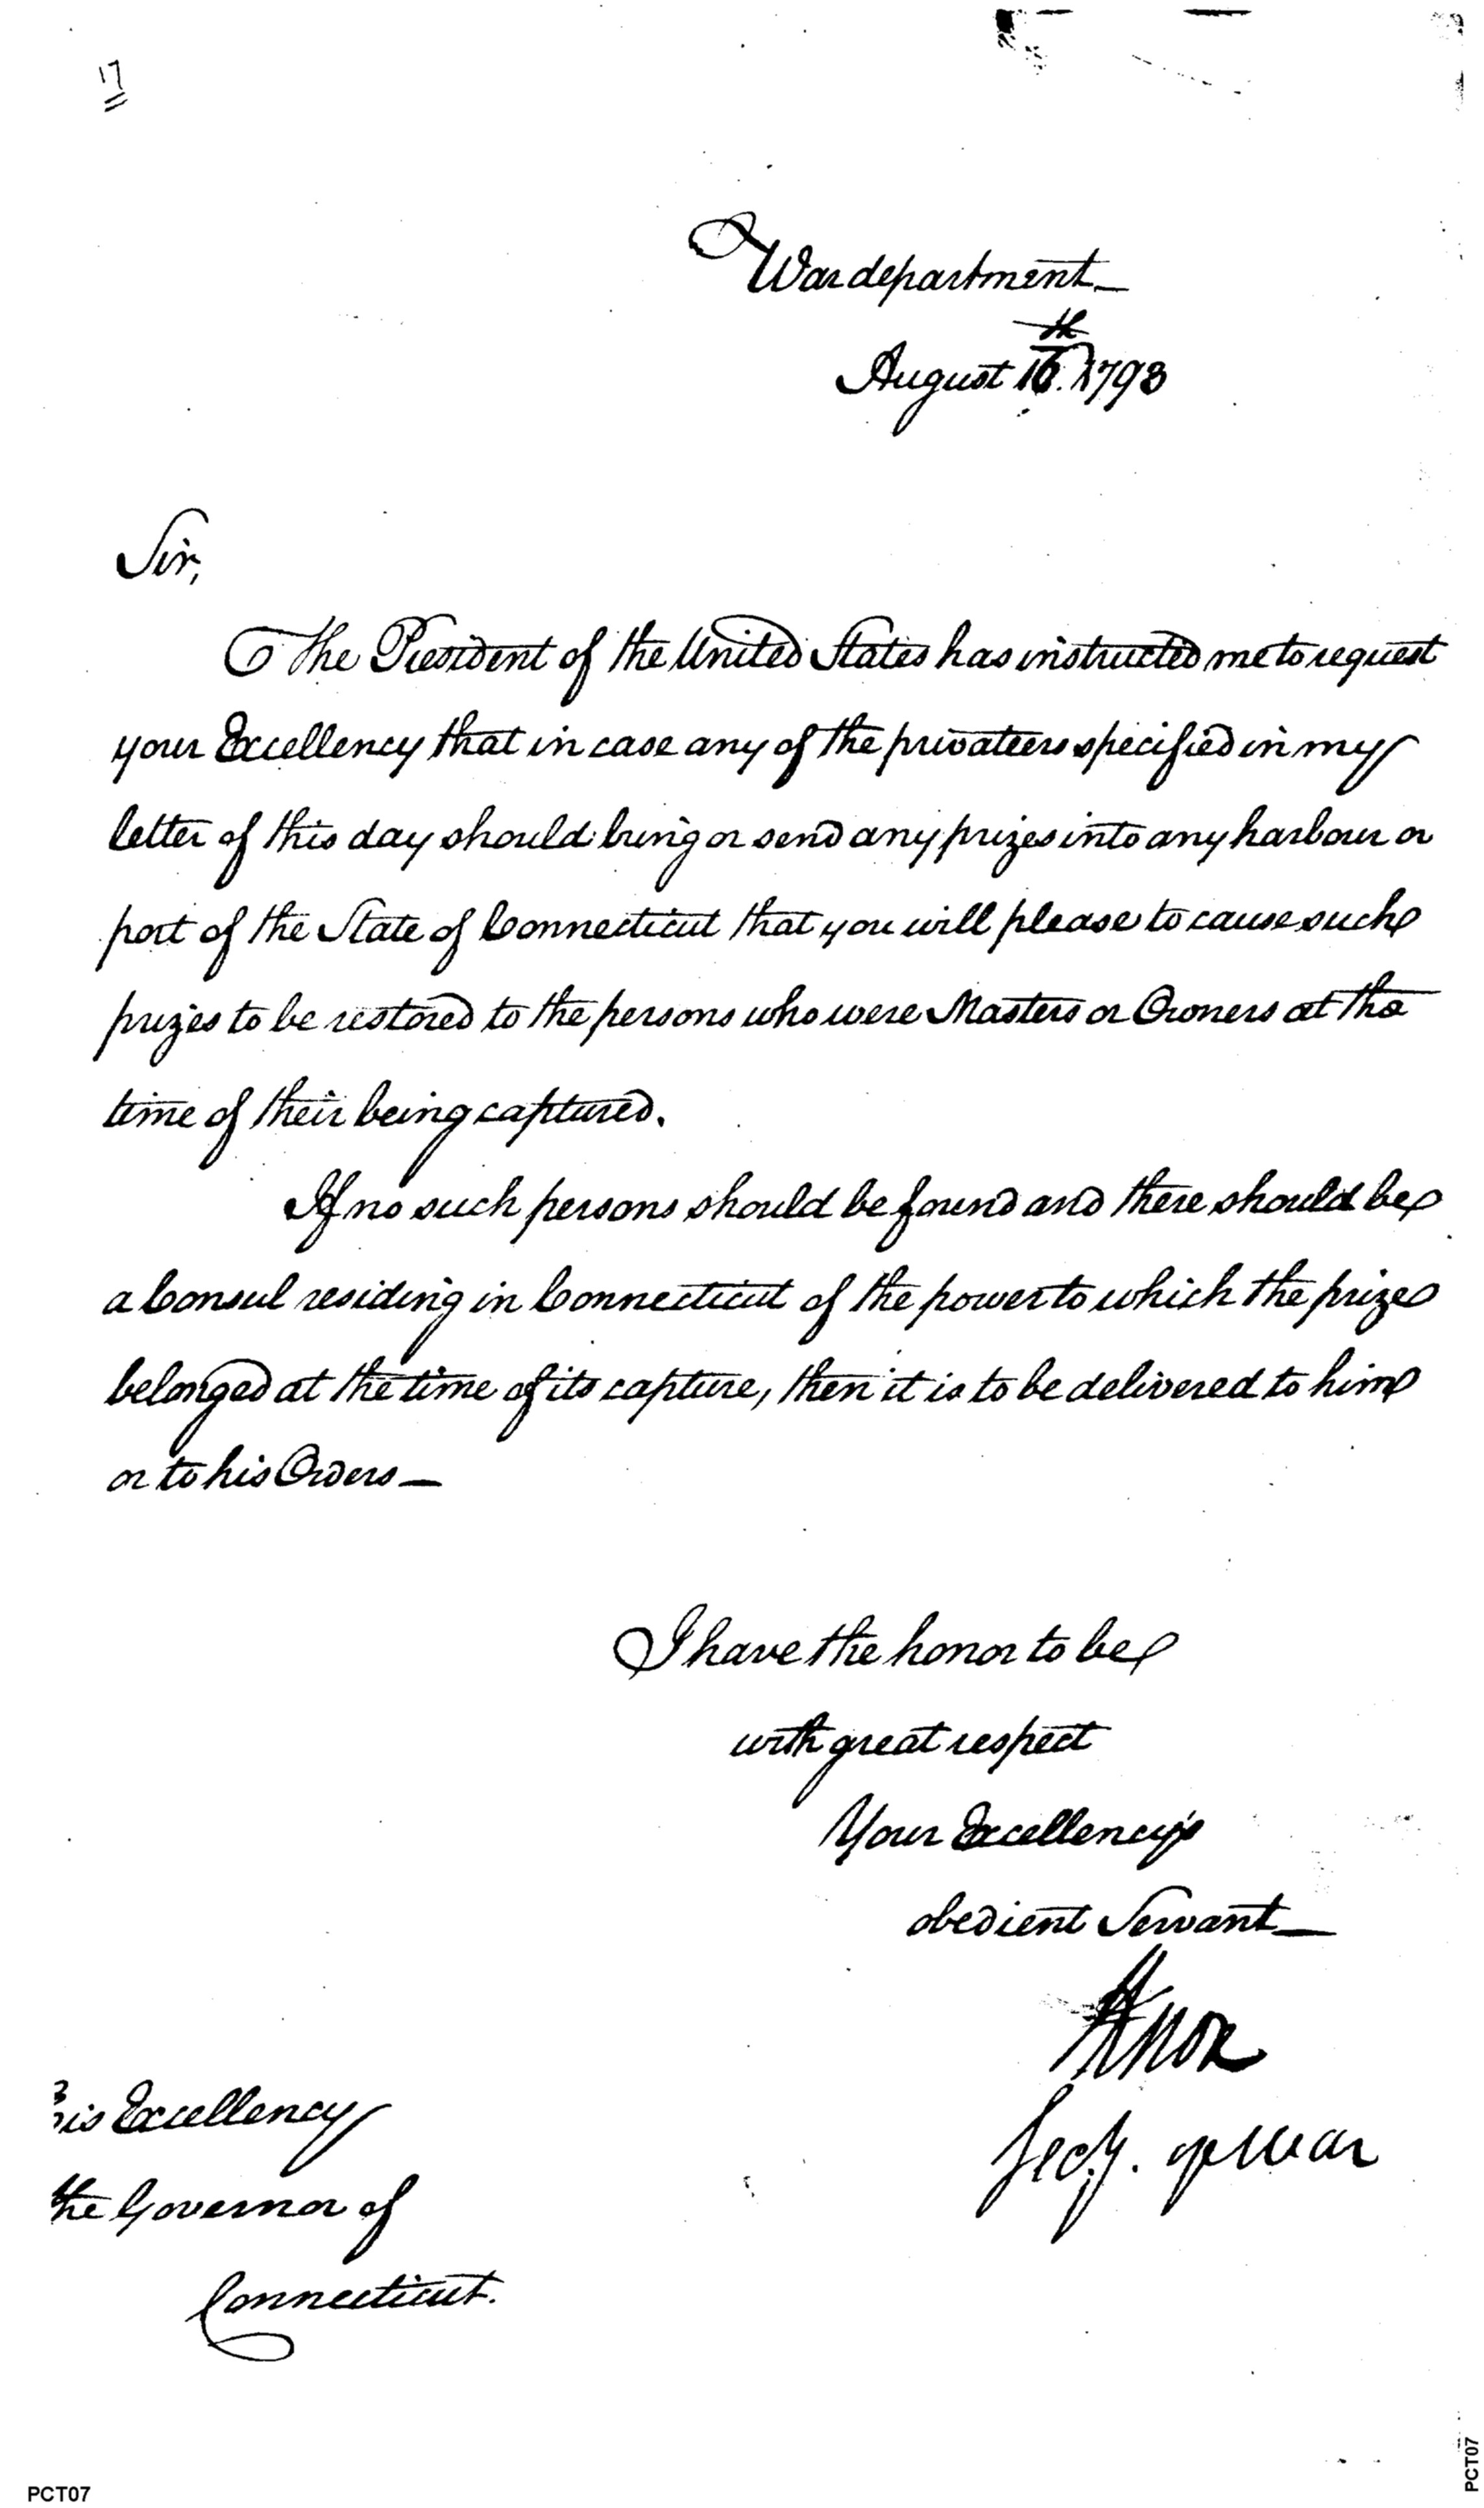 17
War department
August 16th. 1793
Sir,
The President of the United States has instructed me to request
your Excellency that in case any of the privateers specified in my
letter of this day should bring or send any prizes into any harbour or
port of the State of Connecticut that you will please to cause such
prizes to be restored to the persons who were Masters or Owners at the
time of their being captured.
If no such persons should be found and there should be
a Consul residing in Connecticut of the power to which the prize
belonged at the time of its capture, then it is to be delivered to him
or to his Orders—
I have the honor to be
with great respect
Your Excellency's
obedient Servant—
HKnox
Secy. of War
His Excellency
the Governor of
Connecticut.
PCT07
PCT07